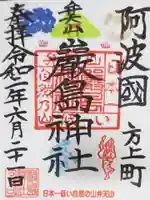 阿波國
方上町
嚴島神社
奉拝
令和二年六月二十一日
日本一低い自然の山弁天山